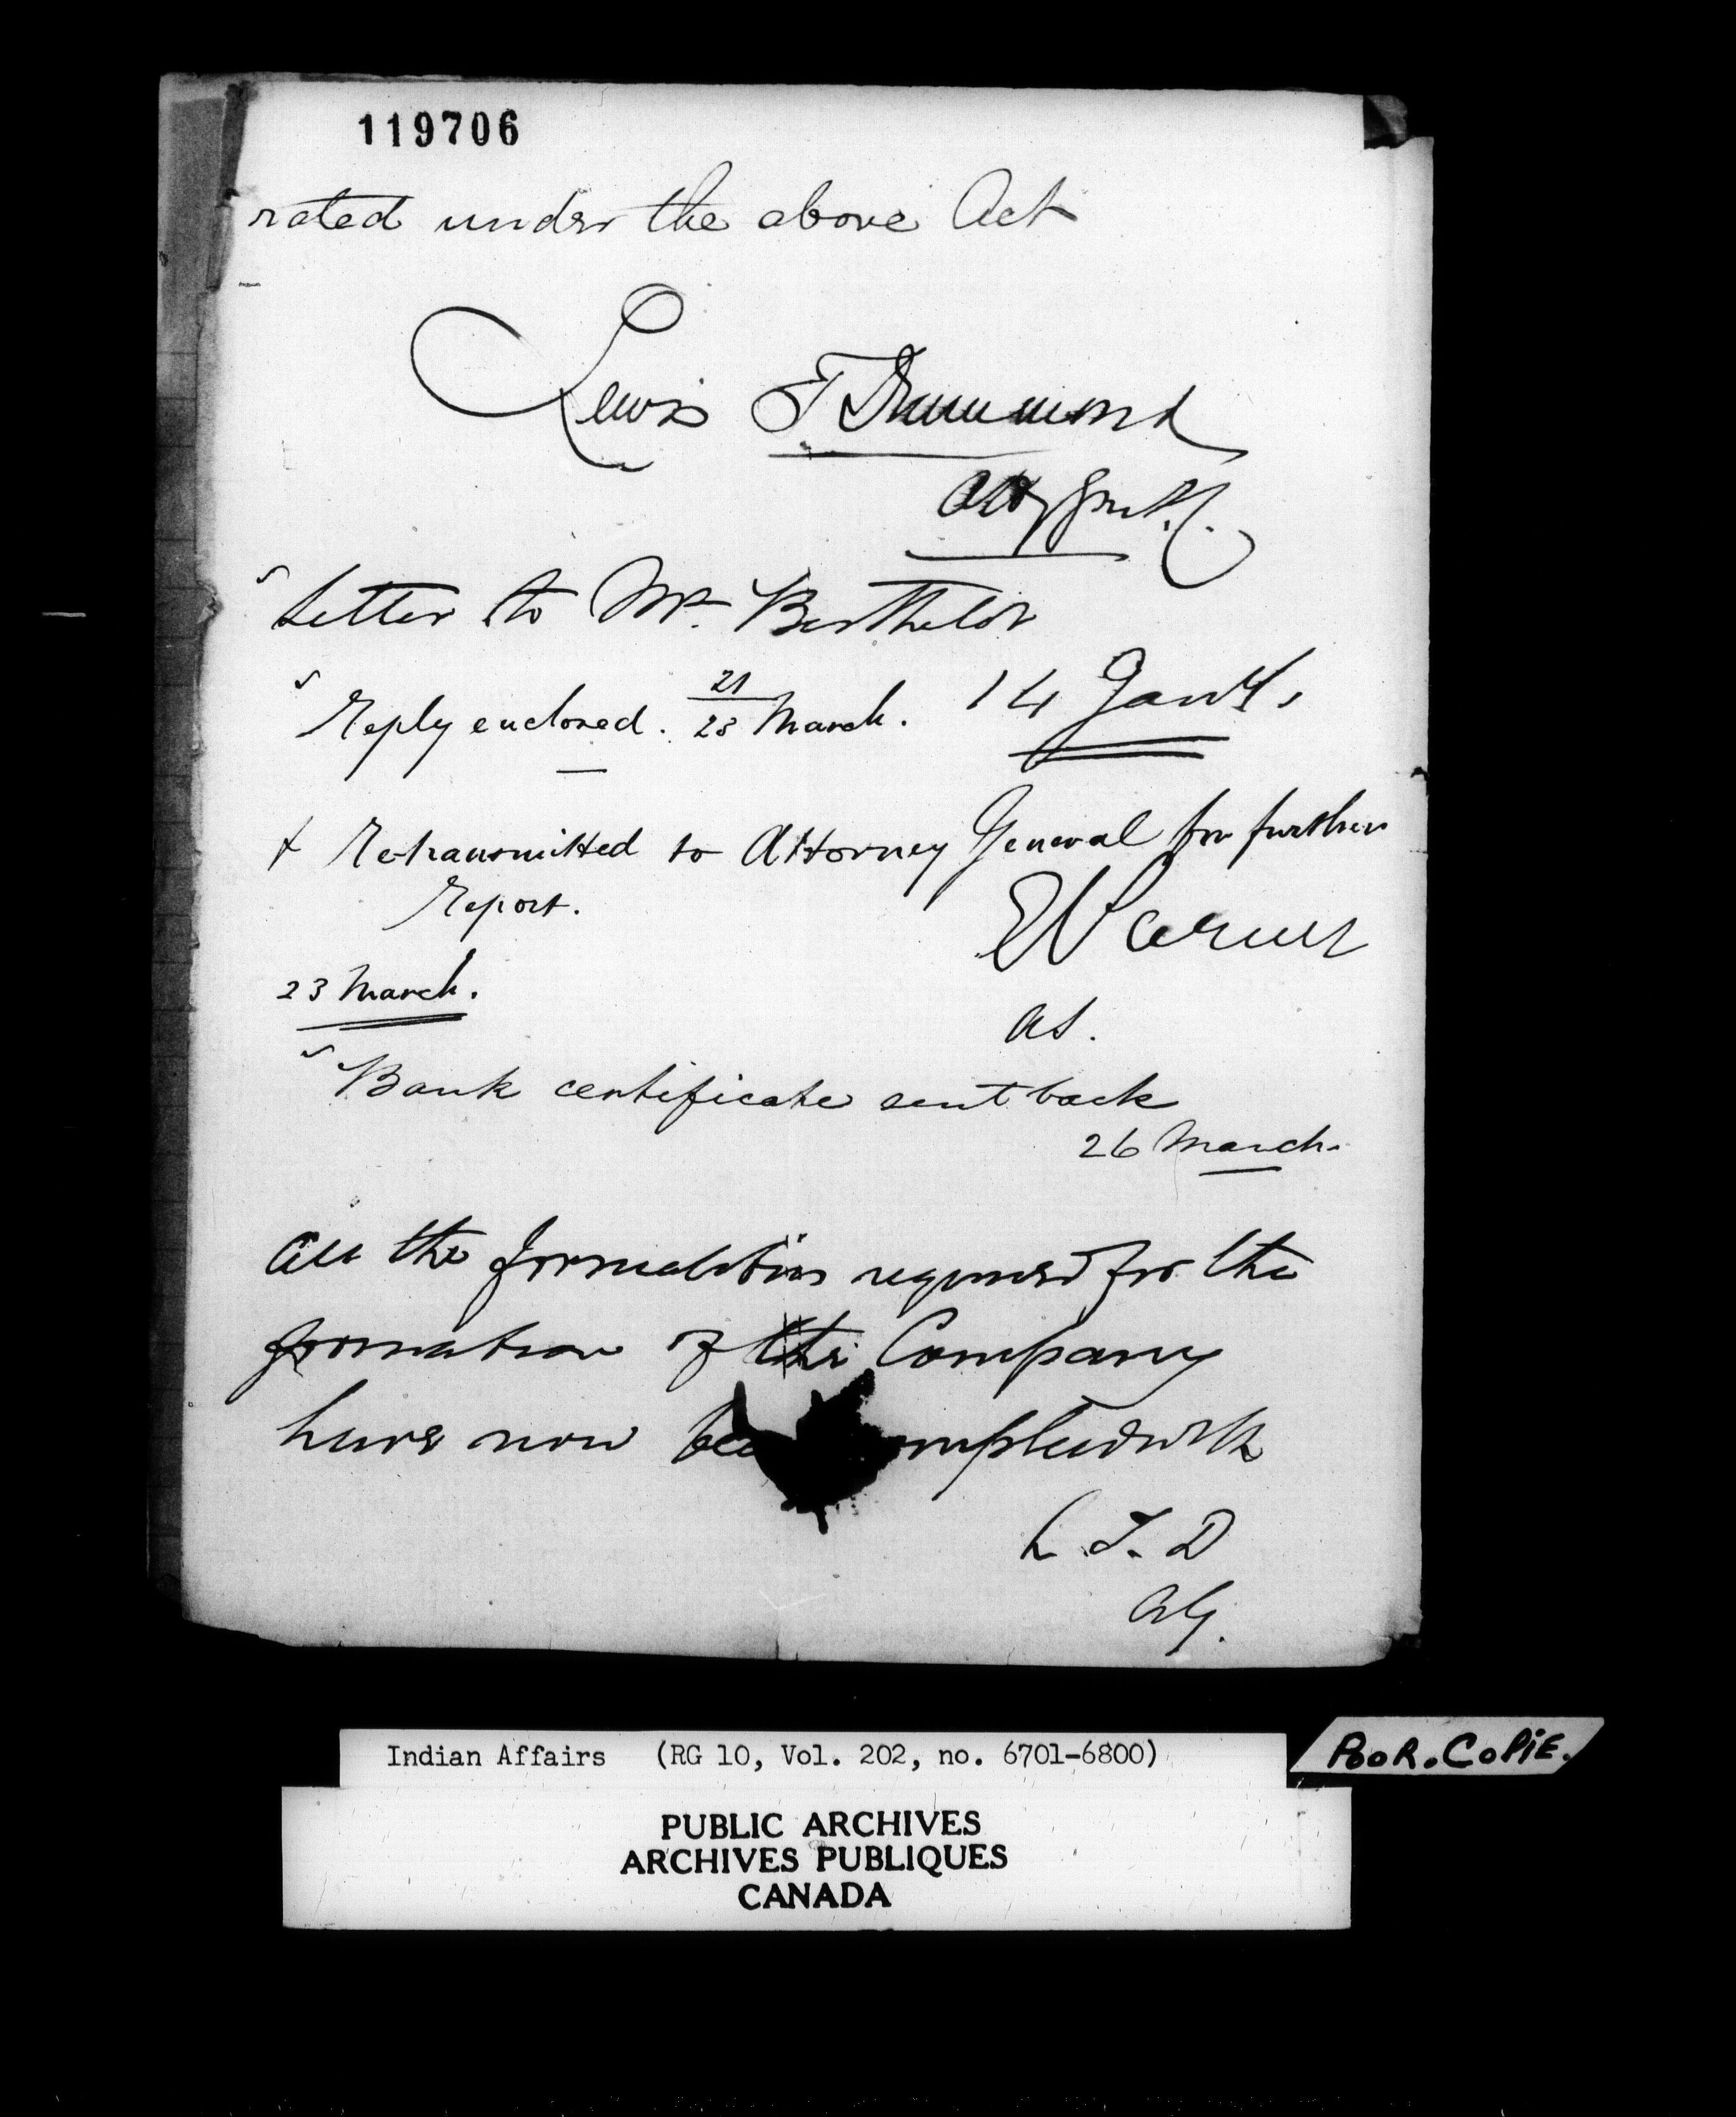 119706
rated under the above Act
Lewis T Drummond
Atty Genl.
Letter to Mr. Berthelot
14 Jany.
Reply enclosed. 21/23 March.
Retransmitted to Attorney General for further
Report.
23 March.
AS.
Bank certificate sent back
26 March.
All the formalities required for the
formation of the Company
have now been complied with
L. T. D
AG.
Indian Affairs (RG 10, Vol. 202, no. 6701-6800)
POOR. COPIE.
PUBLIC ARCHIVES
ARCHIVES PUBLIQUES
CANADA